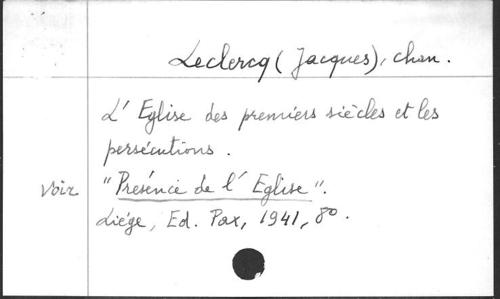 Leclercq (Jacques), chan.
L' Eglise des premiers siècles et les
persécutions.
voir "Présence de l' Eglise".
Liége, Ed. Pax, 1941, 8o.